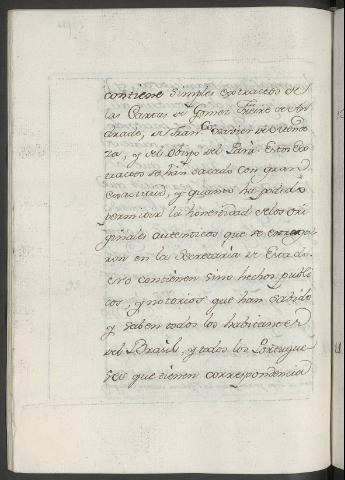 contiene simples extractos de
las Cartas de Gomez Freire de An
drade, de Fran.co Xavier de Mendo
za, y del Obispo del Pará. Estos Ex
tractos se han sacado con gran
exactitud, y quanto ha podido
permitir la honestidad de los ori
ginales autenticos que se
en la Secretaria de Estado.
no contienen sino hechos publi
cos, y notorios que han sabido
y saben todos los habitantes
del Brasil, y todos los Portugue
ses que tienen correspondencia